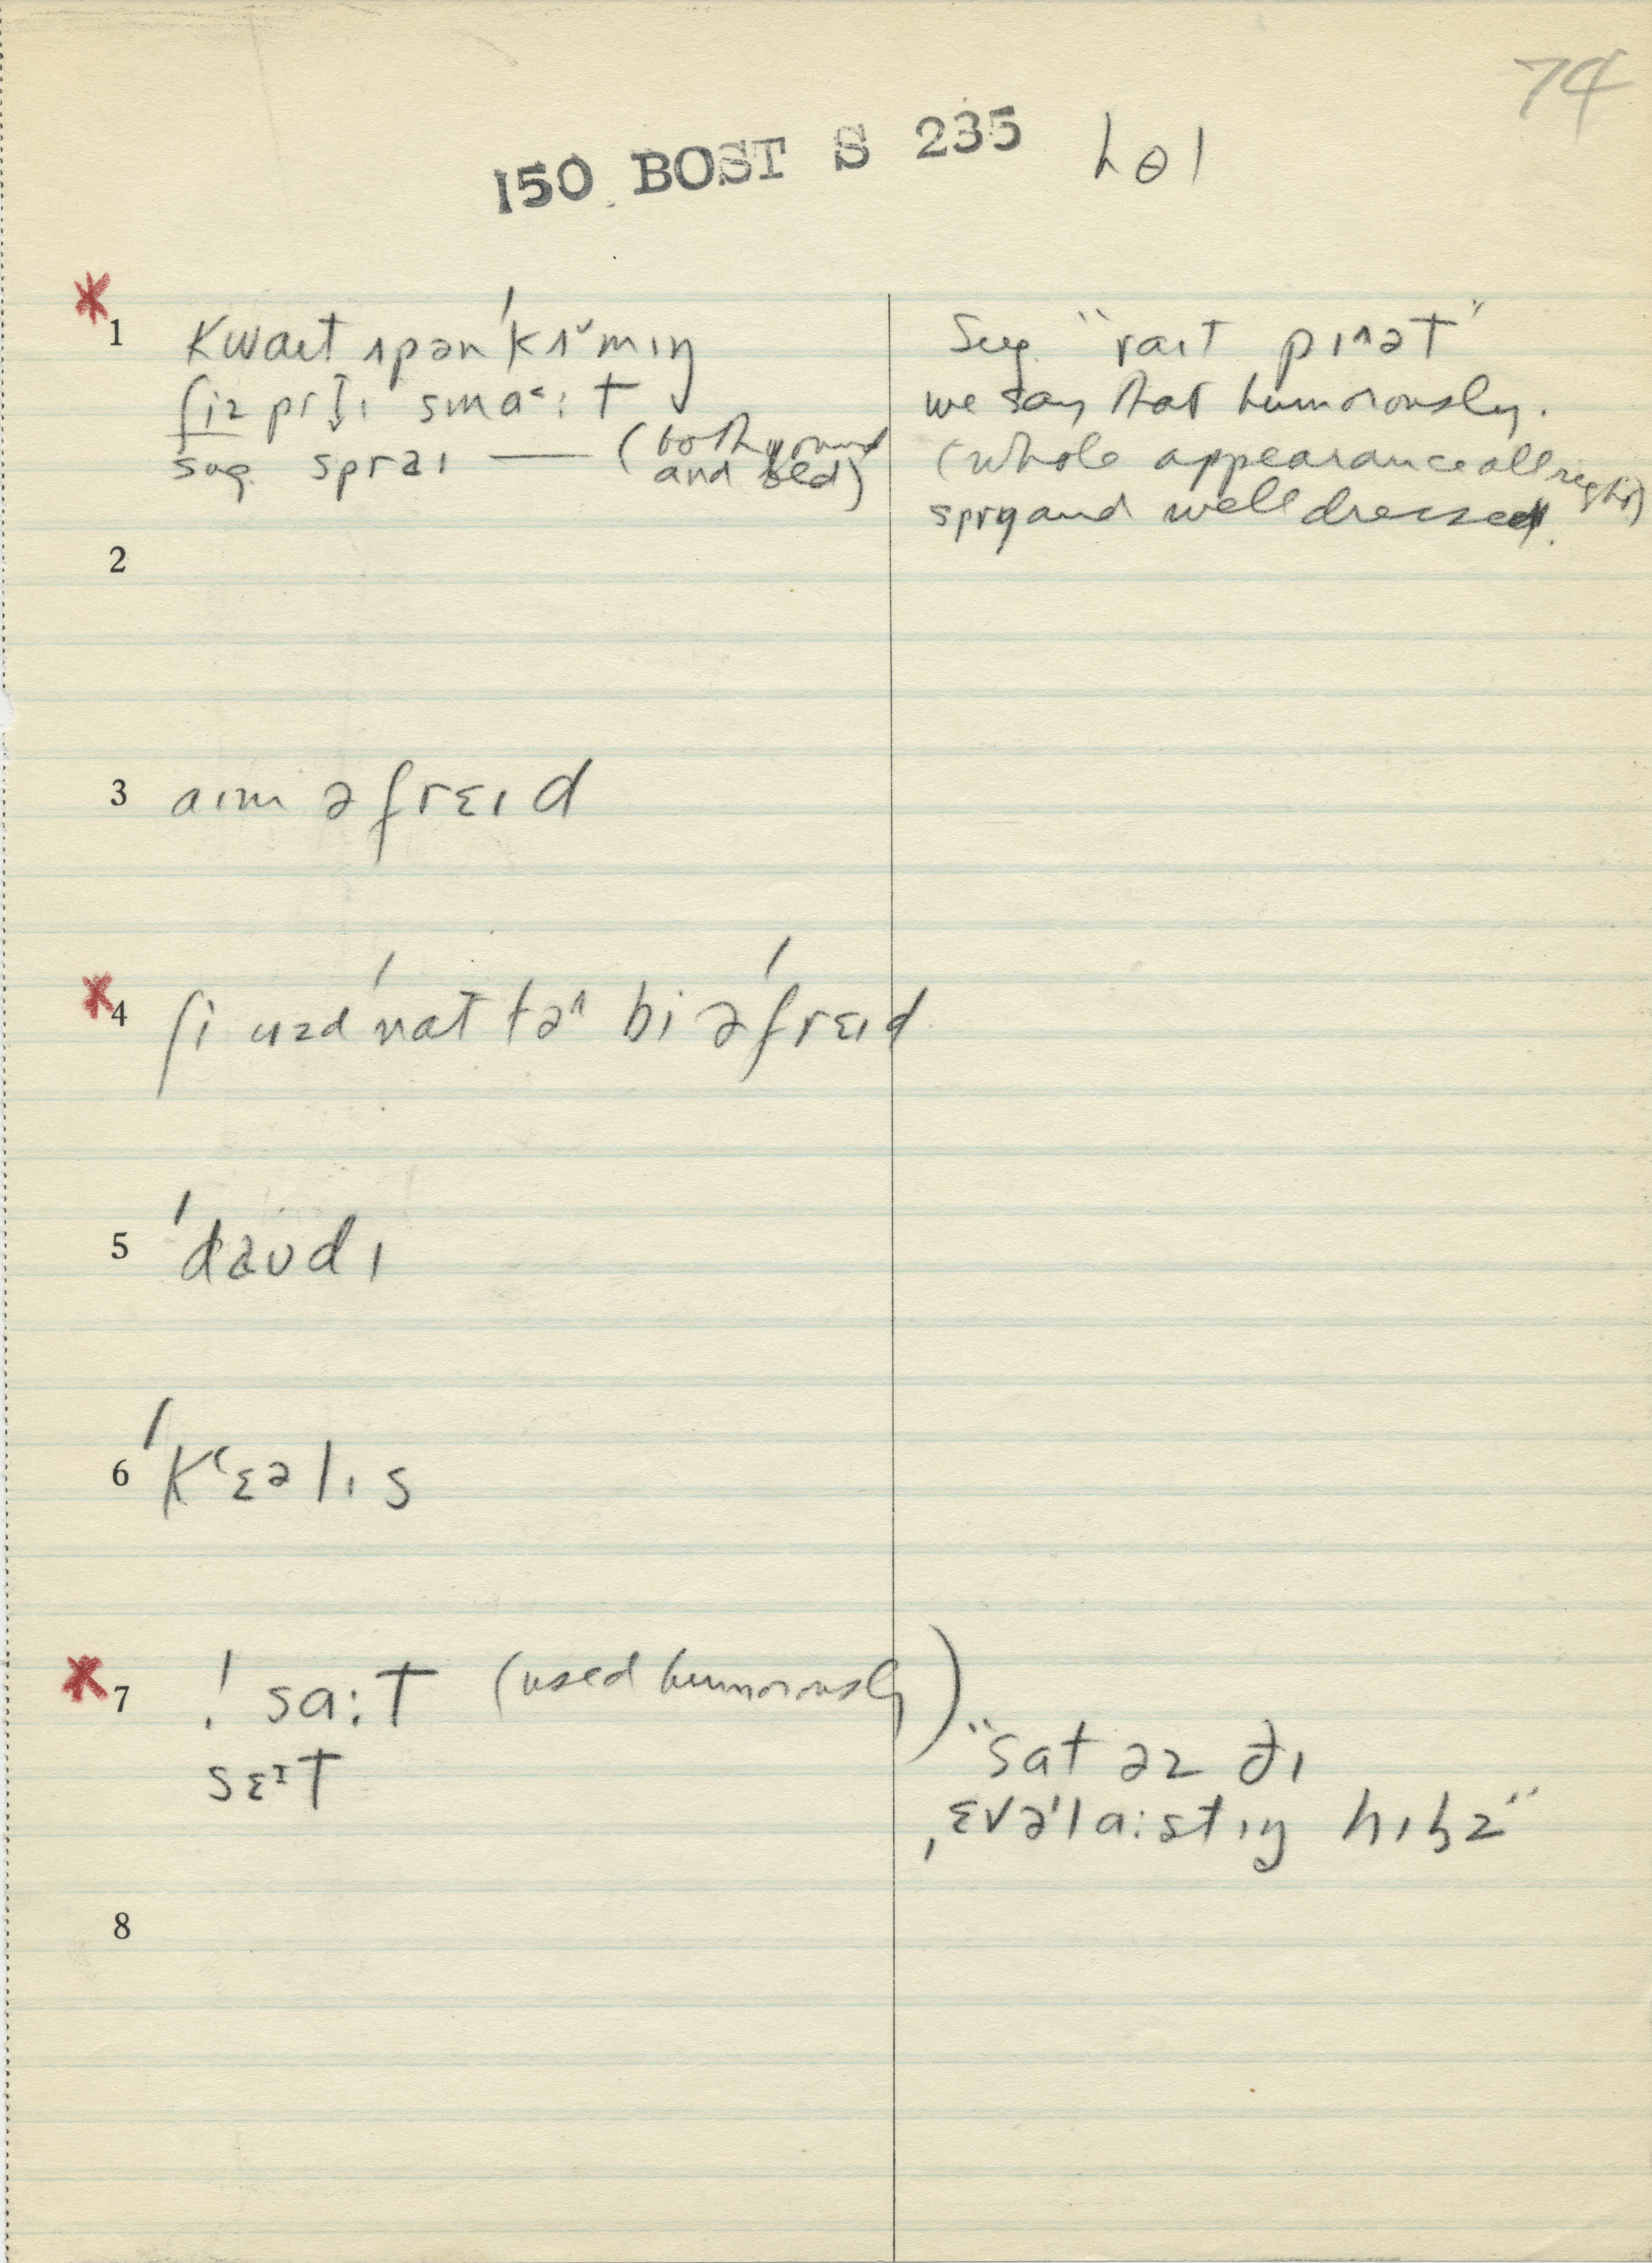 74
150 BOST S 235 hɵl
* 1 Kwaɪt ʌpən ˈkʌ˘mɪŋ
ʃiz prɪṱɪ sma˂:t
sug. spraɪ — (both young and old)
Sug. "raɪt pɪʌət"
we say that humorously.
(whole appearance all right)
spry and well dressed.
2
3 aɪm əfrɛɪd
* 4 ʃi uzd ˈnat tə^ bi əˈfrɛɪd
5 ˈdaʊdɪ
6 ˈKʽɛəlɪs
* 7 ! sa:t (used humorously)
sɛᶦt
"sat əz ðɪ
ˌɛvəˈla:stɪŋ hɪlz"
8